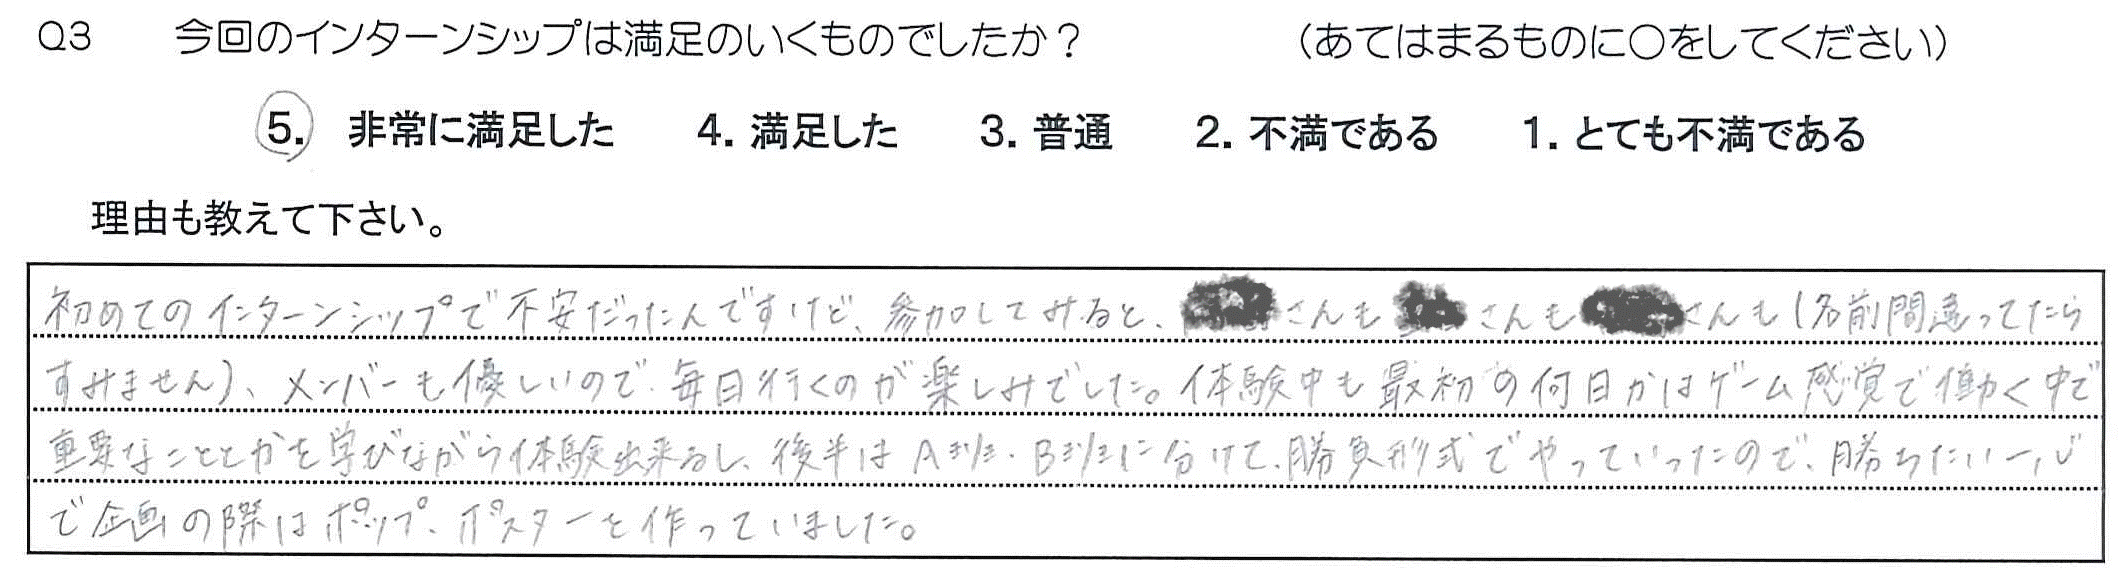 Q3 今回のインターンシップは満足のいくものでしたか？ （あてはまるものに○をしてください）
5. 非常に満足した 4. 満足した 3. 普通 2. 不満である 1. とても不満である
理由も教えて下さい。
初めてのインターンシップで不安だったんですけど、参加してみると、さんもさんもさんも(名前間違ってたら
すみません)、メンバーも優しいので、毎日行くのが楽しみでした。体験中も最初の何日かはゲーム感覚で働く中で
重要なこととかを学びながら体験出来るし、後半はA班・B班に分けて、勝負形式でやっていったので、勝ちたい一心
で企画の際はポップ、ポスターを作っていました。